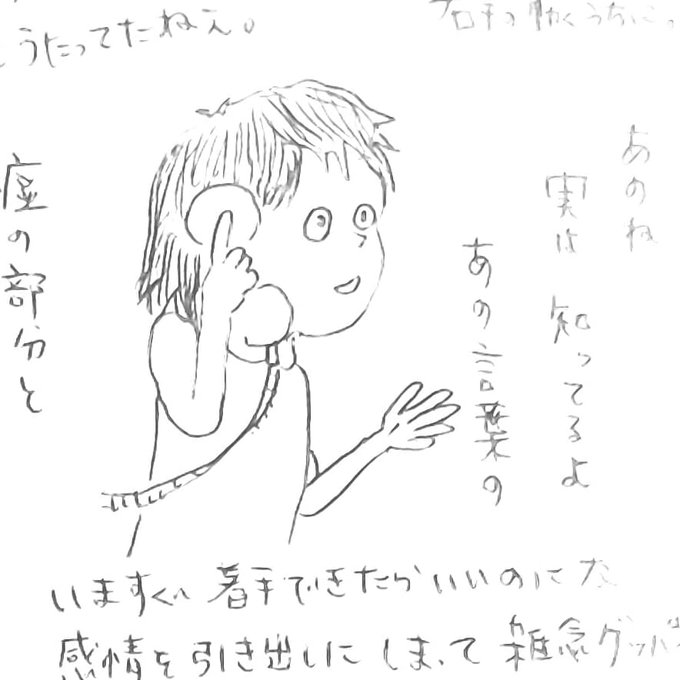 うたってたねえ。
うちに
あのね
実は 知ってるよ
あの言葉の
虚の部分と
いますぐ着手できたらいいのにな
感情を引き出しにしまって 雑念グッバ